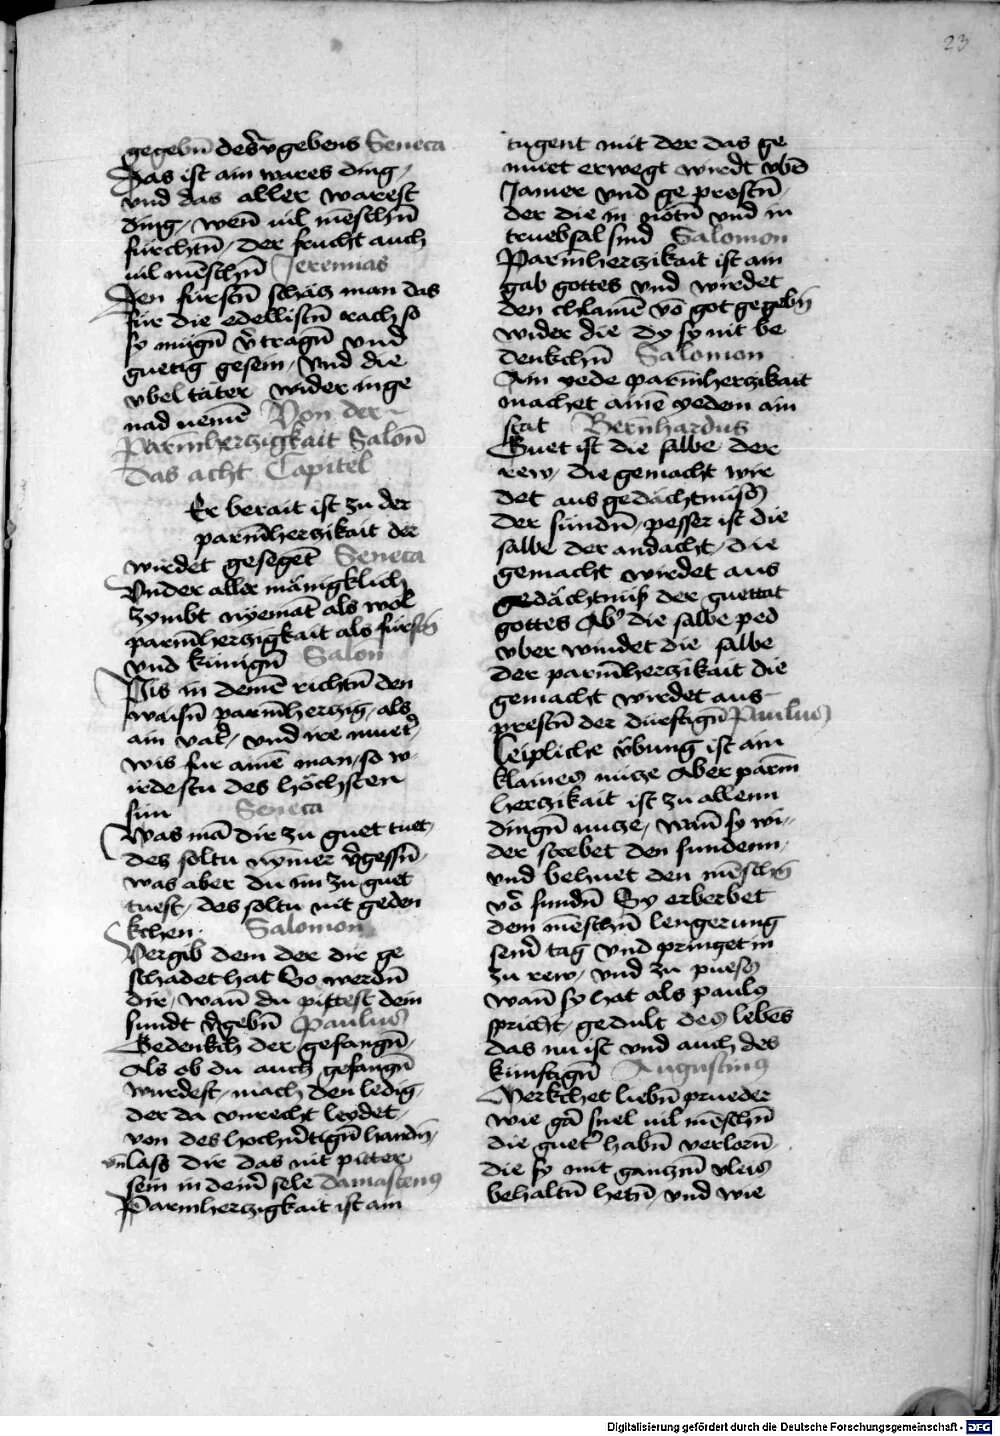 23
gegebn̄ des v̄gebens Seneca
Das ist ain wares ding,
vnd das aller warest
ding, wen̄ uil mēschn̄
fürchtn̄, der frucht auch
uil mēschn̄ Jeremias
Den fürstn̄ schätz man das
für die edellistn̄ rach so
sy mügn̄ v̄tragn̄ vnd
guetig gesein, vnd die
vbeltäter wider in ge
nad nemē Von der
Parm̄herczigkait Salon̄
das acht Capitel
Er berait ist zu der
parm̄herczikait der
wirdet gesegēt Seneca
Vnder aller mänigklich
zymbt nyemāt als wol
parm̄herczigkait als fürstn̄
vnd künign̄ Salon
Pis in demē richtn̄ den
waisn̄ parm̄herczig, als
ain vat̄, vnd ire muet̄
wis für ainē man, so w
irdestu des höchsten
sun Seneca
Was mā dir zu guet tuet,
des soltu nym̄er v̄gessn̄,
was aber du im zu guet
tuest, des soltu nit geden
kchen. Salomon
Vergib dem der dir ge
schadet hat So werdn̄
dir, wan̄ du pittest dein
sundt v̄gebn̄ Paulus
Gedenkch der gefangn̄,
Als ob du auch gefangn̄
wurdest, mach den ledig,
der da vnrecht leydet,
von des hochūtign̄ handn̄,
vn̄ lass dir das nit pitter
sein in deiner sele Damascenus
Parmherczigkait ist ain
tugent mit der das ge
müet erwegt wirdt vbēr
Jamer vnd ge prestn̄,
der die in nötn̄ vnd in
truebsal sind Salomon
Parm̄herczikait ist ain
gab gottes vnd wirdet
den chlainē vō got gegebn̄
wider die dy sy nit be
denkchn̄ Salomon
Ain yede parm̄herczikait
machet ainē yedem ain
stat Bernhardus
Guet ist die salbe der
rew, die gemacht wir
det aus gedächtnüss
der sündn̄, pesser ist die
salbe der andacht, die
gemacht wirdet aus
gedächtnüss der guettat
gottes Ab̄ die salbe ped
vber windet die salbe
der parm̄herczikait die
gemacht wirdet aus
prestn̄ der dürftign̄ Paulus
Leipliche übung ist ain
klaines nucze Aber parm̄
herczikait ist zu allenn
dingn̄ nucze, wan̄ sy wi,,
der strebet den sundenn,
vnd behuet den mēschn̄
vō sundn̄ Sy erberbet
dem mēschn̄ lengerung
sein̄ tag vnd pringet in
zu rew, vnd zu puess
wan̄ sy hat als pauls
spricht, gedult des lebēs
das nu ist vnd auch des
künftign̄ Augustinus
Merkchet liebn̄ prueder
wie gā snel uil mēschn̄
die guet̄ habn̄ verlorn̄
die sy mit ganczm̄ vleis
behaltn̄ hetn̄, vnd wie
Digitalisierung gefördert durch die Deutsche Forschungsgemeinschaft - DFG